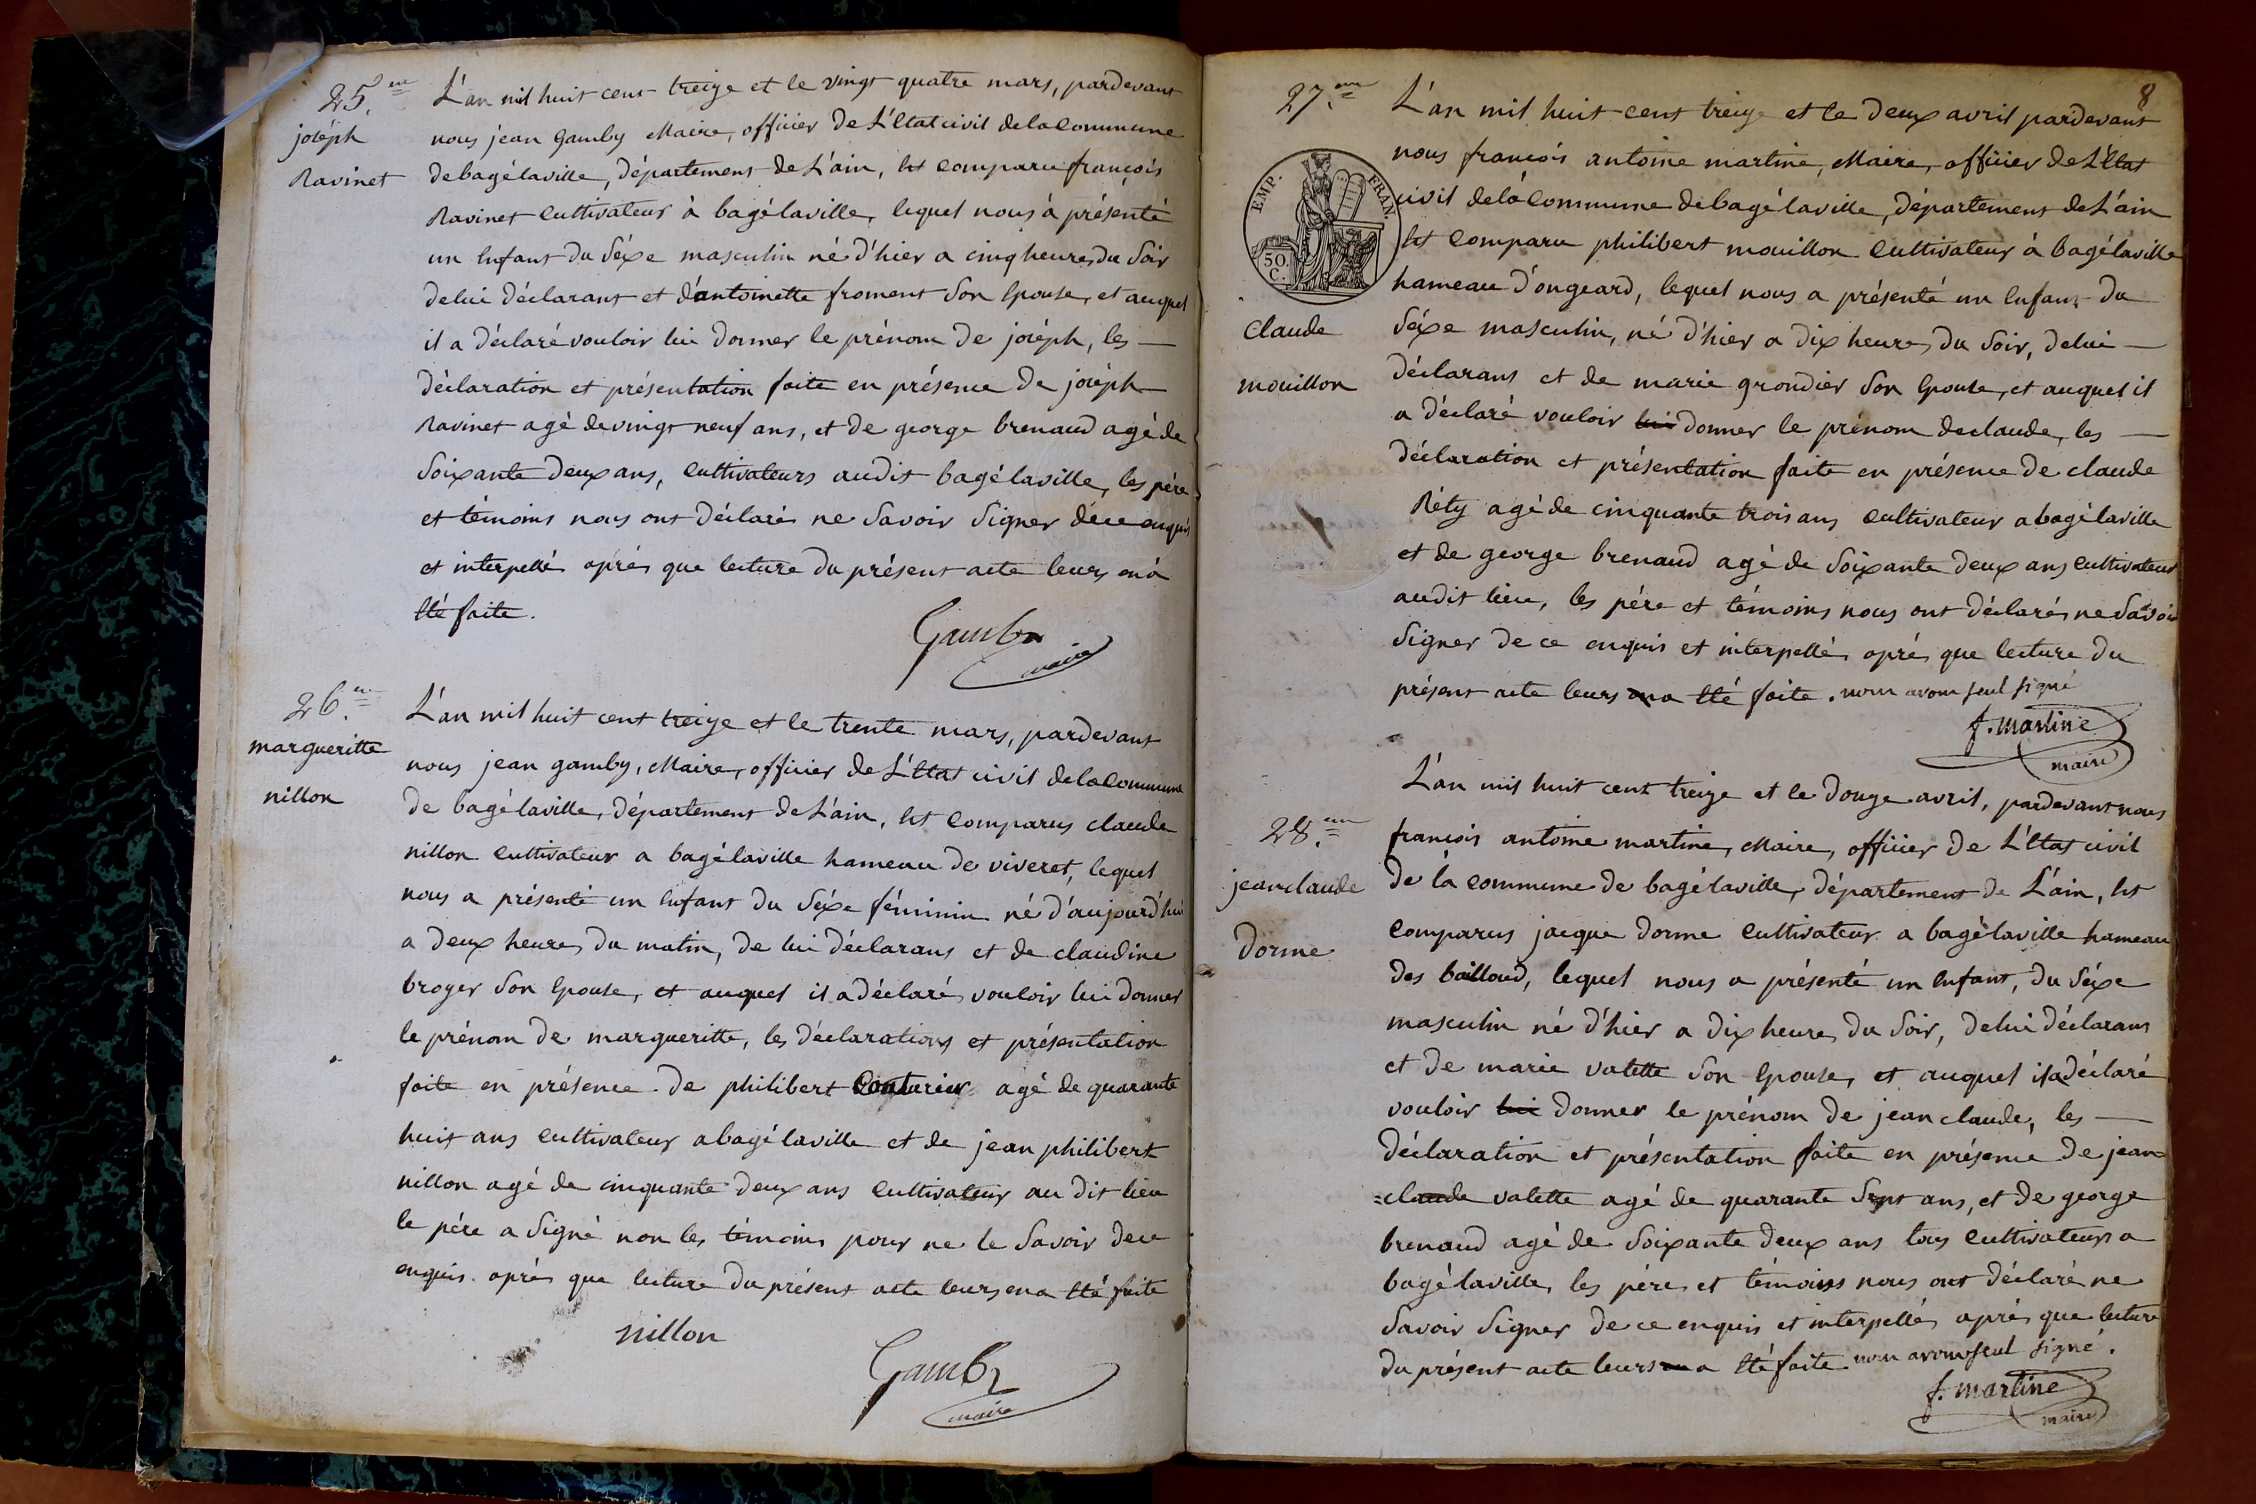 25.me
joséph
Ravinet
L'an mil huit cent treize et le vingt quatre mars, pardevant
nous jean Gamby Maire, officier de L'Etat civil de la Commune
de bagélaville, département de L'ain, Est comparu françois
Ravinet Cultivateur à bagélaville, lequel nous à présenté
un Enfant du Séxe masculin né d'hier a cinq heures du Soir
de lui déclarant et d'antoinette froment Son Epouse, et auquel
il a déclaré vouloir lui donner le prénom de joséph, les —
déclaration et présentation faite en présence de joséph
Ravinet agé de vingt neuf ans, et de george brenaud agé de
Soixante deux ans, Cultivateurs audit bagélaville, les pére
et témoins nous ont déclarés ne Savoir Signer de ce enquis
et interpellés aprés que lecture du présent acte leurs en à
Eté faite.
Gamby
maire
26.me
margueritte
nillon
L'an mil huit cent treize et le trente mars, pardevant
nous jean gamby, Maire, officier de L'Etat civil de la Commune
de bagélaville, département de L'ain, Est Comparus claude
nillon Cultivateur a bagélaville hameau de viveret, lequel
nous a présenté un Enfant du Séxe féminin né d'aujourd'hui
a deux heures du matin, de lui déclarans et de claudine
broyer Son Epouse, et auquel il a déclarés vouloir lui donner
le prénom de margueritte, les déclarations et présentation
faite en présence de philibert Couturier agé de quarante
huit ans Cultivateur a bagélaville et de jean philibert
nillon agé de cinquante deux ans Cultivateur au dit lieu
le pére a Signé non les témoins pour ne le Savoir de ce
enquis aprés que lecture du présent acte leurs en a Eté faite
nillon
Gamby
maire
8
27.me
EMP. FRAN.
50. C.
claude
mouillon
L'an mil huit cent treize et le deux avril pardevant
nous françois antoine martine, Maire, officier de L'Etat
civil de la Commune de bagélaville, département de L'ain
Est Comparu philibert mouillon Cultivateur à bagélaville
hameau d'ongeard, lequel nous a présenté un Enfant du
Séxe masculin, né d'hier a dix heures du Soir, de lui —
déclarans et de marie grondier Son Epouse, et auquel il
a déclaré vouloir lui donner le prénom de claude, les —
déclaration et présentation faite en présence de claude
Réty agé de cinquante trois ans Cultivateur a bagélaville
et de george brenaud agé de Soixante deux ans Cultivateur
audit lieu, les pére et témoins nous ont déclarés ne Savoir
Signer de ce enquis et interpellés aprés que lecture du
présent acte leurs en a Eté faite. nous avons seul signé
f. martine
maire
28.me
jean claude
Dorme
L'an mil huit cent treize et le douze avril, pardevant nous
françois antoine martine, Maire, officier de L'Etat civil
de la commune de bagélaville, département de L'ain, Est
Comparus jacque Dorme Cultivateur a bagélaville hameau
des bailloud, lequel nous a présenté un Enfant, du Séxe
masculin né d'hier a dix heures du Soir, de lui déclarans
et de marie valette Son Epouse, et auquel il a déclaré
vouloir lui donner le prénom de jean claude, les —
déclaration et présentation faite en présence de jean=
=claude valette agé de quarante Sept ans, et de george
brenaud agé de Soixante deux ans tous Cultivateurs a
bagélaville, les pére et témoins nous ont déclaré ne
Savoir Signer de ce enquis et interpellés aprés que lecture
du présent acte leurs en a Eté faite nous avons seul signé.
f. martine
maire